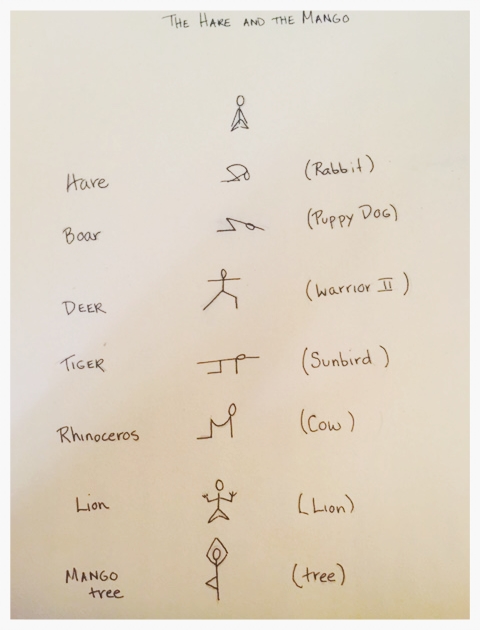 THE HARE AND THE MANGO
Hare (Rabbit)
Boar (Puppy Dog)
DEER (Warrior II)
TIGER (Sunbird)
Rhinoceros (Cow)
Lion (Lion)
MANGO (tree)
tree